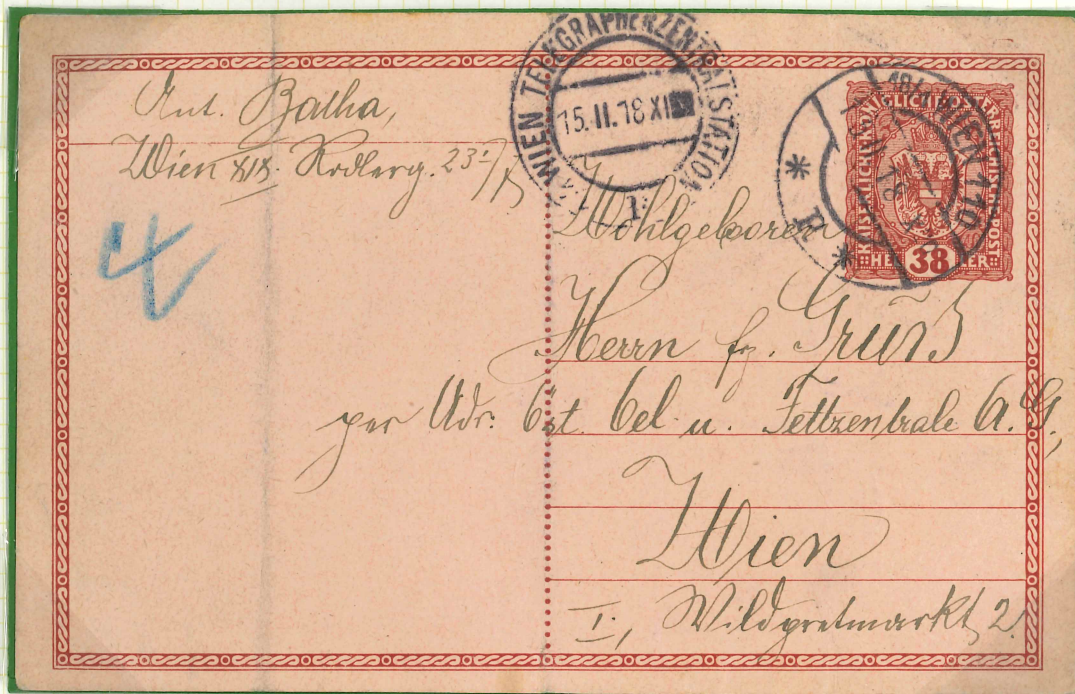 Ant. Batha,
Wien XIX. Rodlerg. 23
4
WIEN TELEGRAPHENZENTRALSTATION
15.II.18 XI
1
18/1 WIEN 110
KAISERLICHE KÖNIGLICHE ÖSTERREICHISCHE POST
HELLER 38 HELLER
Wohlgeboren
Herrn Grüß
per Adr. Öst. Oel u. Fettzentrale A.G.,
Wien
I., Wildpretmarkt 2.